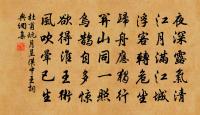 夜深露氣清
江月滿江城
浮客轉危坐
歸舟應獨行
關山同一照
烏鵲自多驚
欲得淮王術
風吹暈已生
杜甫玩月呈漢中王